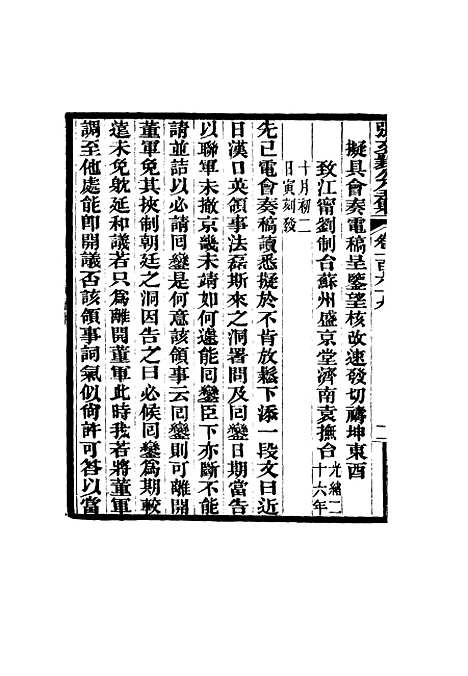 張文襄公全集 卷一百六九 二
擬具會奏電稿呈鑒望核改速發切禱坤東酉
致江甯劉制台蘇州盛京堂濟南袁撫台光緒二十六年
十月初二日寅刻發
先已電會奏稿讀悉擬於不肯放鬆下添一段文曰近
日漢口英領事法磊斯來之洞署問及回鑾日期當告
以聯軍未撤京畿未靖如何遽能回鑾臣下亦斷不能
請並詰以必請回鑾是何意該領事云回鑾則可離開
董軍免其挾制朝廷之洞因告之曰必候回鑾爲期較
遠未免躭延和議若只爲離開董軍此時我若將董軍
調至他處能卽開議否該領事詞氣似尙許可答以當